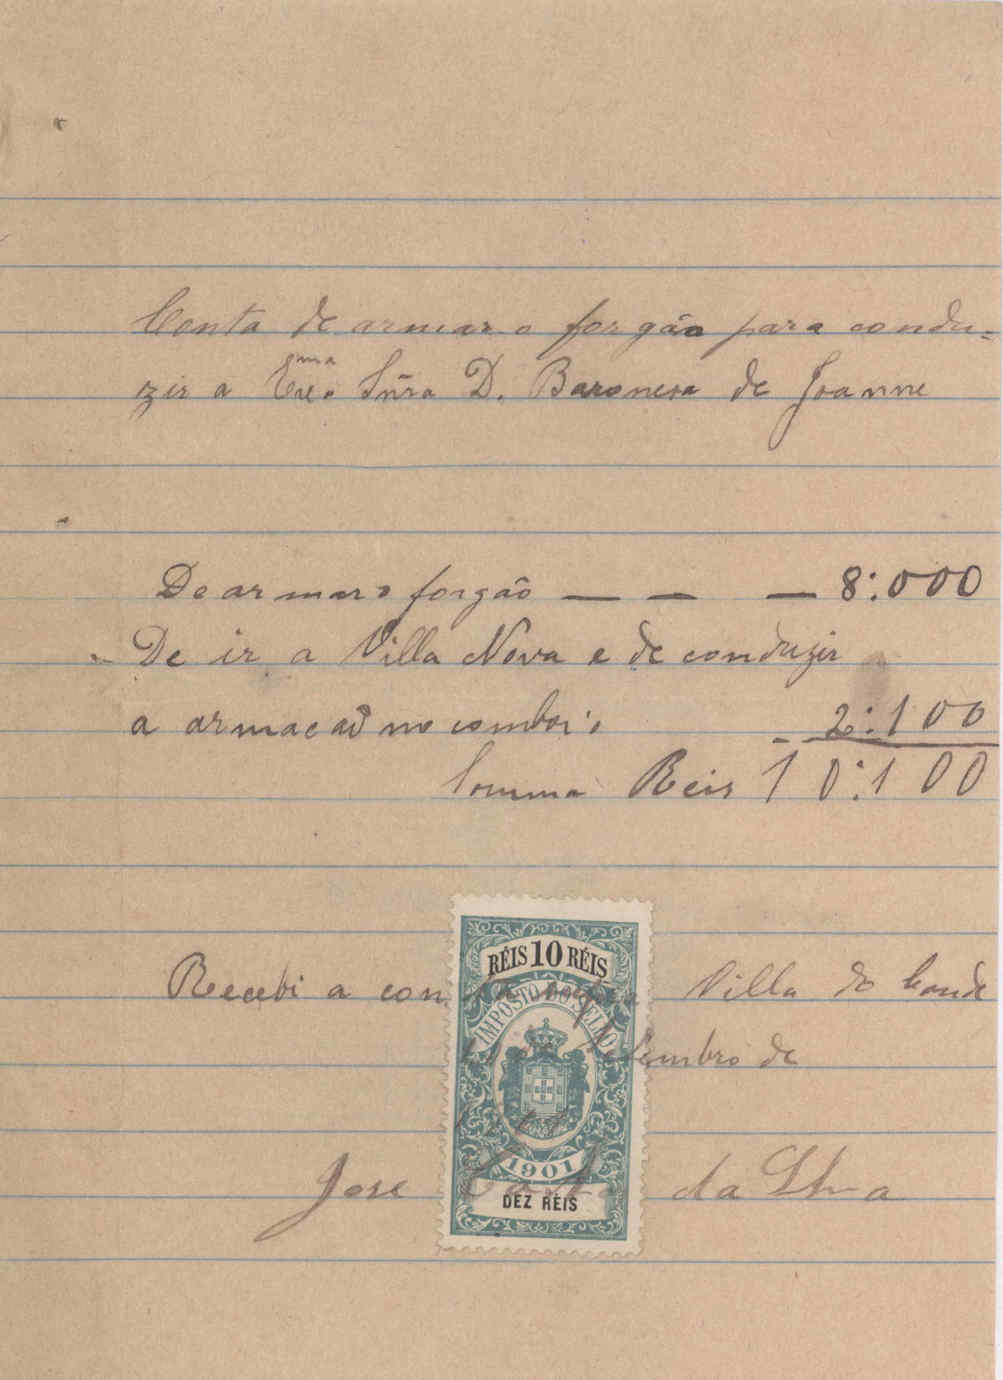 Conta de armar o forgão para condu-
zir a Exc.ma Snr̃a D. Baroneza de Joanne
De armar o forgão — — — 8:000
De ir a Villa Nova e de conduzir
a armacaõ no comboi'o 2:100
Somma Reis 10:100
RÉIS 10 RÉIS
Recebi a conta Villa do Conde
IMPOSTO DO SELLO
de Setembro de
1901
Jose Costa da Silva
DEZ RÉIS